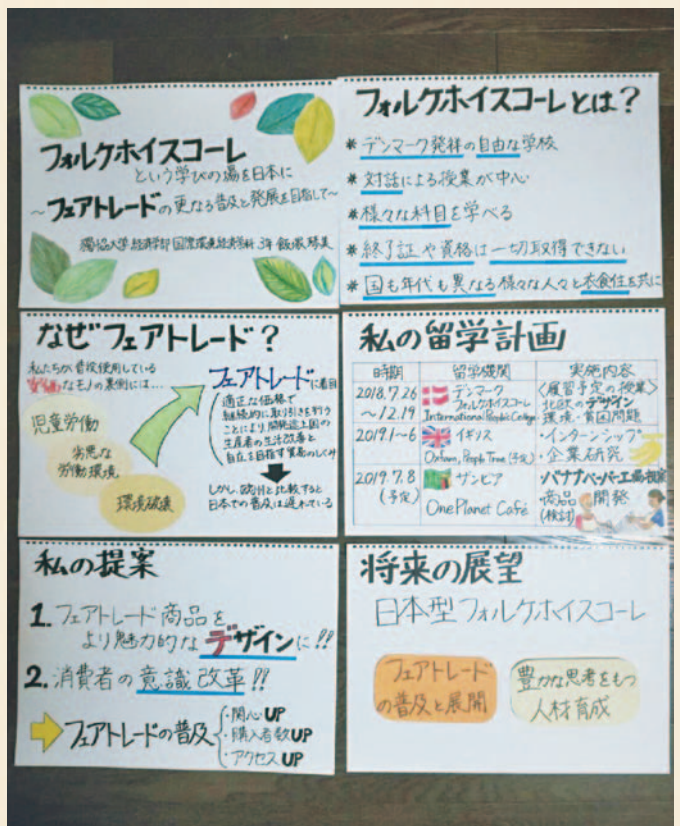 フォルケホイスコーレ
という学びの場を日本に
～フェアトレードの更なる普及と発展を目指して～
獨協大学 経済学部 国際環境経済学科 3年
フォルケホイスコーレとは？
* デンマーク発祥の自由な学校
* 対話による授業が中心
* 様々な科目を学べる
* 終了証や資格は一切取得できない
* 国も年代も異なる様々な人々と衣食住を共に
なぜフェアトレード？
私たちが普段使用している
なモノの裏側には…
児童労働
劣悪な
労働環境
環境破壊
フェアトレードに着目
適正な価格で
継続的に取り引きを行う
ことにより、開発途上国の
生産者の生活改善と
自立を目指す貿易のしくみ
しかし、欧州と比較すると
日本での普及は遅れている
私の留学計画
時期 留学機関 実施内容
2018.7.26
～12.19
デンマーク
フォルケホイスコーレ
International People's College
〈履習予定の授業〉
北欧のデザイン
環境・貧困問題
2019.1～6
イギリス
Oxfam, People Tree (予定)
・インターンシップ
・企業研究
2019.7.8
(予定)
ザンビア
One Planet Café
・バナナペーパー工場視察
商品開発
(検討)
私の提案
1. フェアトレード商品を
より魅力的なデザインに!!
2. 消費者の意識改革!!
フェアトレードの普及
・関心UP
・購入者数UP
・アクセスUP
将来の展望
日本型フォルケホイスコーレ
フェアトレード
の普及と展開
豊かな思考をもつ
人材育成